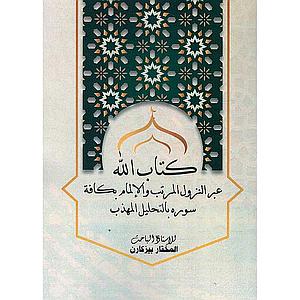 كتاب الله
عبر النزول المرتب والإلمام بكافة
سوره بالتحليل المهذب
للأستاذ الباحث
المختار بيزكارن